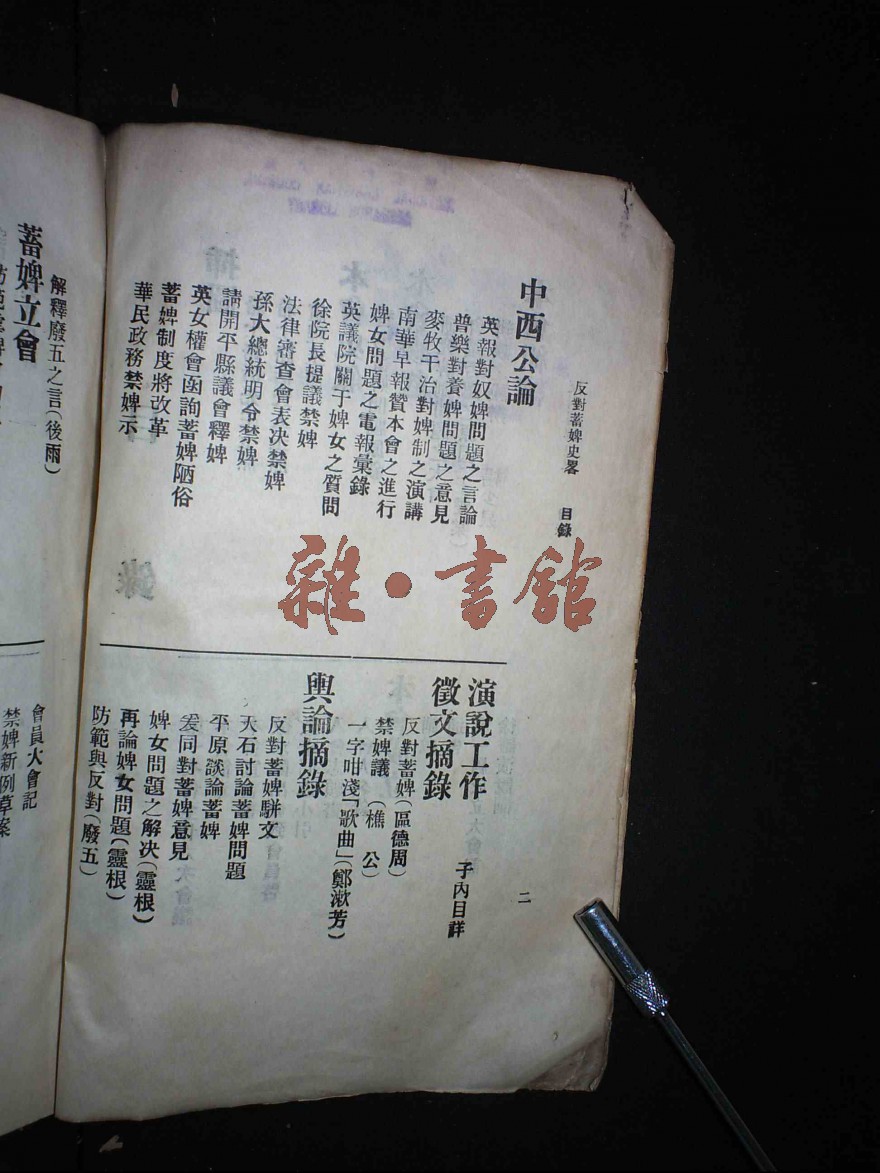 反對蓄婢史畧 目錄
二
中西公論
英報對奴婢問題之言論
普樂對養婢問題之意見
麥牧干治對婢制之演講
南華早報贊本會之進行
婢女問題之電報彙錄
英議院關于婢女之質問
徐院長提議禁婢
法律審查會表决禁婢
孫大總統明令禁婢
請開平縣議會釋婢
英女權會函詢蓄婢陋俗
蓄婢制度將改革
華民政務禁婢示
演說工作 子內目詳
徵文摘錄
反對蓄婢(區德周)
禁婢議(樵 公)
一字咁淺「歌曲」(鄭漱芳)
輿論摘錄
反對蓄婢駢文
天石討論蓄婢問題
平原談論蓄婢
爰同對蓄婢意見
婢女問題之解決(靈根)
再論婢女問題(靈根)
防範與反對(廢五)
解釋廢五之言(後雨)
蓄婢立會
會員大會記
禁婢新例草案
雜·書館